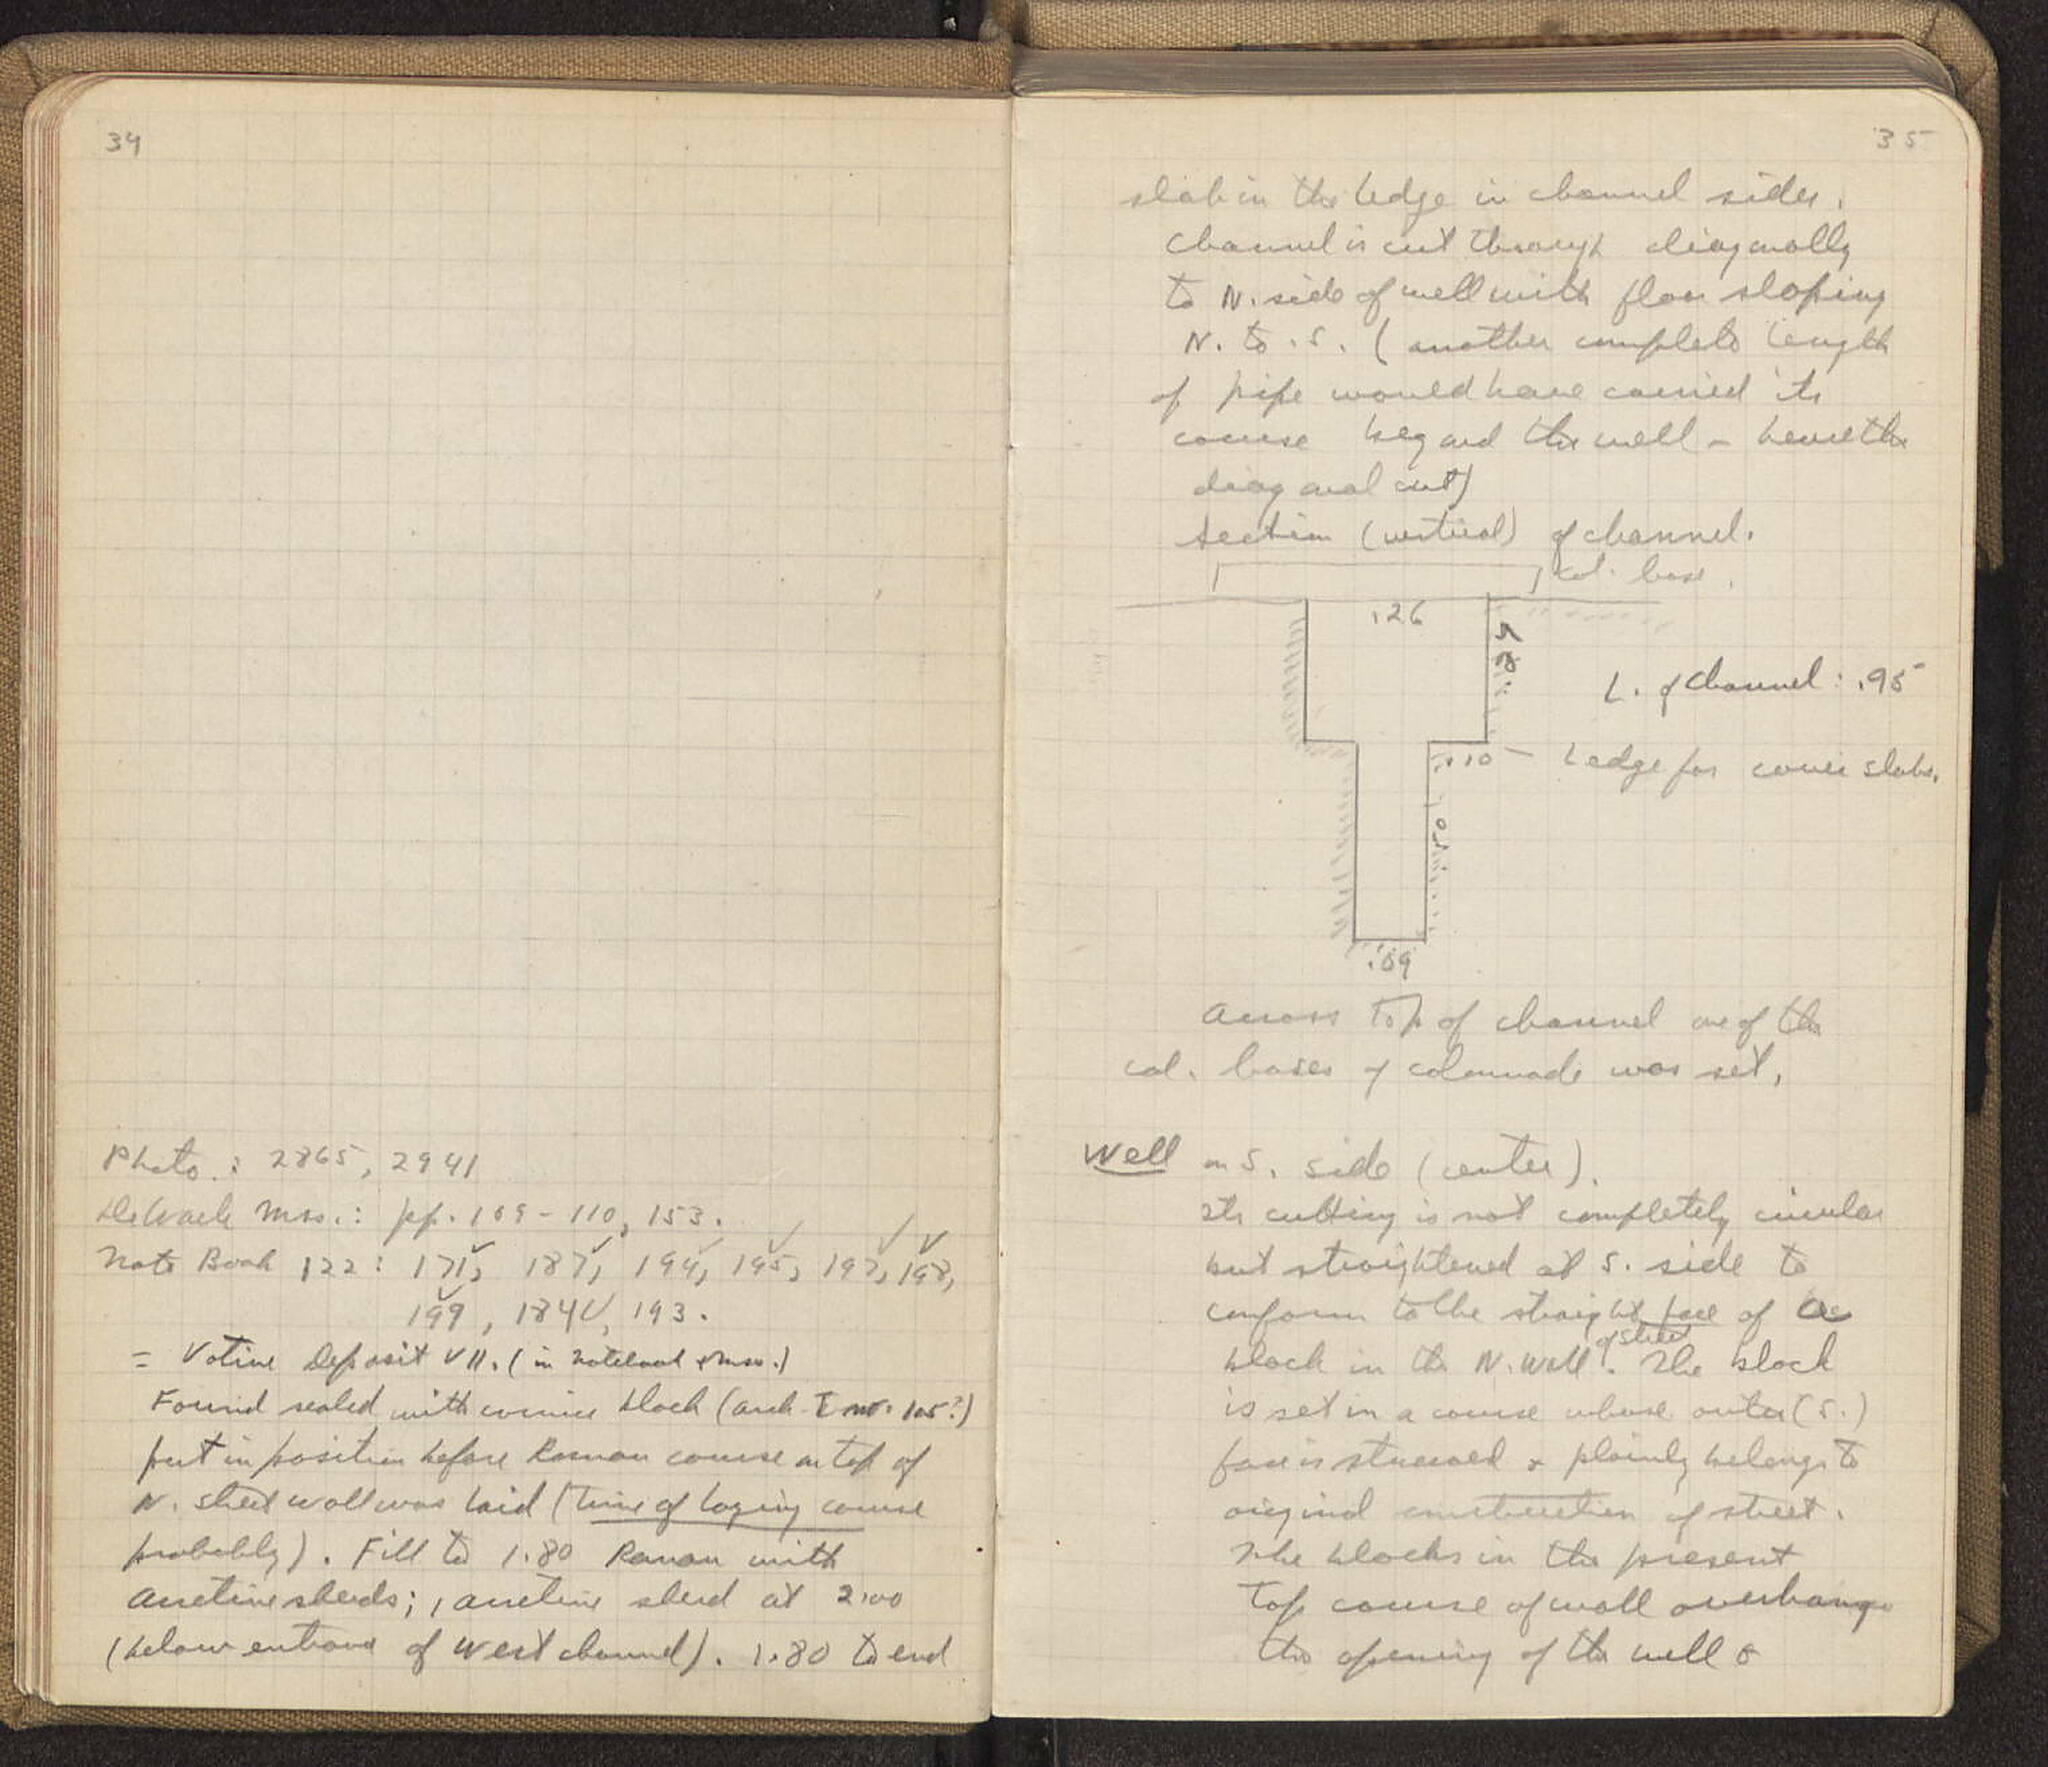 34
Photo.: 2865, 2941
DeWaele Mss.: pp. 109-110, 153.
Note Book 122: 171, 187, 194, 195, 197, 198,
199, 184, 193.
= Votive Deposit VII. (in notebook & mss.)
Found sealed with cornice block (arch. Inv. 105?)
put in position before Roman course on top of
N. street wall was laid (time of laying course
probably). Fill to 1.80 Roman with
Arretine sherds; 1 arretine sherd at 2.00
(below entrance of West channel). 1.80 to end
35
slab in the ledge in channel sides.
Channel is cut through diagonally
to N. side of well with floor sloping
N. to S. (another complete length
of pipe would have carried its
course beyond the well - hence the
diagonal cut)
Section (vertical) of channel.
col. base.
.26
.185
L. of channel: .95
.10 - Ledge for cover slabs.
.09
Across top of channel one of the
col. bases of colonnade was set.
Well on S. side (center).
Its cutting is not completely circular
but straightened at S. side to
conform to the straight face of a
block in the N. wall of street. The block
is set in a course whose outer (S.)
face is stuccoed & plainly belongs to
original construction of street.
The blocks in the present
top course of wall overhang
the opening of the well &